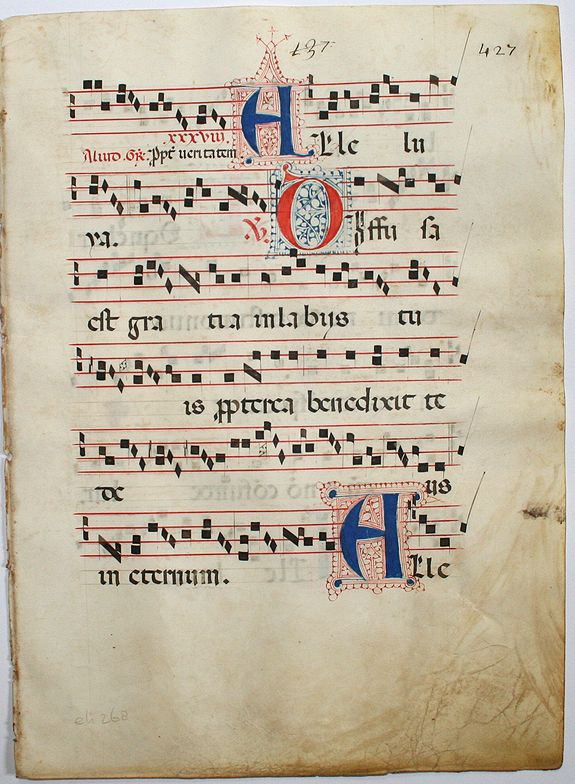 137 427
xxxviii.
Aliud. Gr. Ppt veritatem Alle lu
ya. V. Diffu sa
est gra tia in labijs tu
is ppterea benedixit te
de us
in eternum. Alle
eh 268